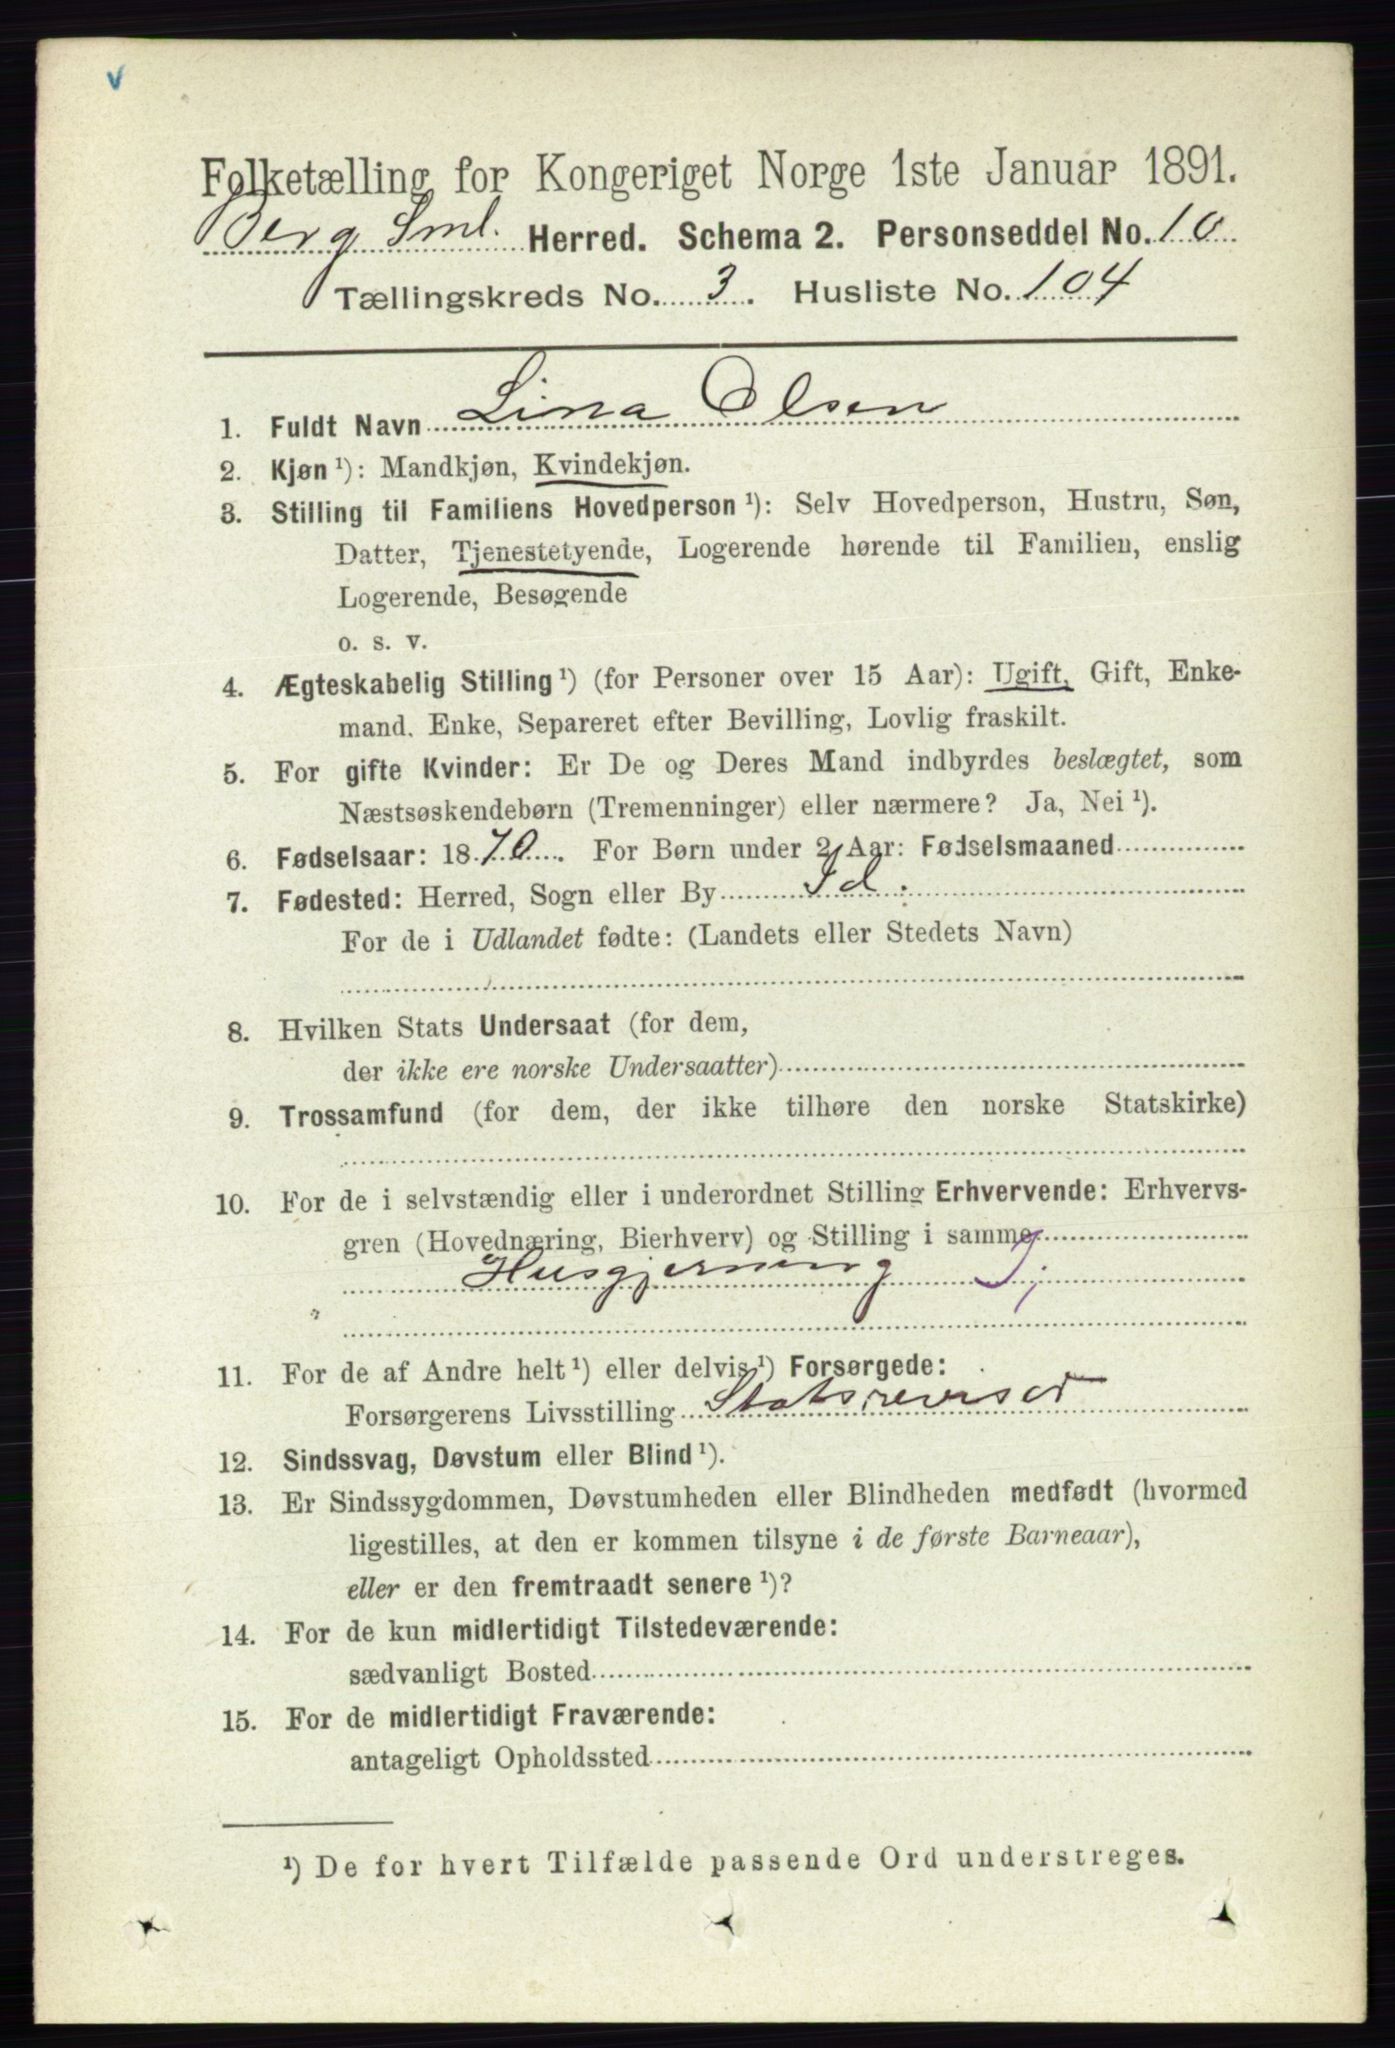 Folketælling for Kongeriget Norge 1ste Januar 1891.
Berg Sml. Herred. Schema 2. Personseddel No. 10
Tællingskreds No. 3. Husliste No. 104
1. Fuldt Navn Lina Olsen
2. Kjøn ¹): Mandkjøn, Kvindekjøn.
3. Stilling til Familiens Hovedperson ¹): Selv Hovedperson, Hustru, Søn,
Datter, Tjenestetyende, Logerende hørende til Familien, enslig
Logerende, Besøgende
o. s. v.
4. Ægteskabelig Stilling ¹) (for Personer over 15 Aar): Ugift, Gift, Enke-
mand. Enke, Separeret efter Bevilling, Lovlig fraskilt.
5. For gifte Kvinder: Er De og Deres Mand indbyrdes beslægtet, som
Næstsøskendebørn (Tremenninger) eller nærmere? Ja, Nei ¹).
6. Fødselsaar: 1870. For Børn under 2 Aar: Fødselsmaaned
7. Fødested: Herred, Sogn eller By Id.
For de i Udlandet fødte: (Landets eller Stedets Navn)
8. Hvilken Stats Undersaat (for dem,
der ikke ere norske Undersaatter)
9. Trossamfund (for dem, der ikke tilhøre den norske Statskirke)
10. For de i selvstændig eller i underordnet Stilling Erhvervende: Erhvervs-
gren (Hovednæring, Bierhverv) og Stilling i samme
Husgjerning
11. For de af Andre helt ¹) eller delvis ¹) Forsørgede:
Forsørgerens Livsstilling Statsrevisor
12. Sindssvag, Døvstum eller Blind ¹).
13. Er Sindssygdommen, Døvstumheden eller Blindheden medfødt (hvormed
ligestilles, at den er kommen tilsyne i de første Barneaar),
eller er den fremtraadt senere ¹)?
14. For de kun midlertidigt Tilstedeværende:
sædvanligt Bosted
15. For de midlertidigt Fraværende:
antageligt Opholdssted
¹) De for hvert Tilfælde passende Ord understreges.